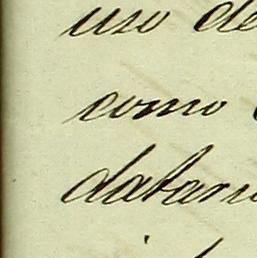 uso de
como
datam